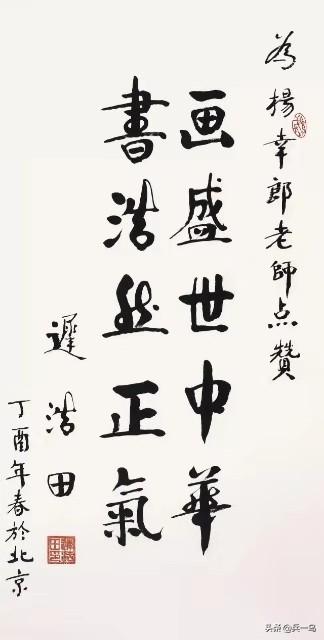 為楊幸郎老師点赞
画盛世中華
書浩然正氣
遲浩田
丁酉年春於北京
头条@兵一鸟